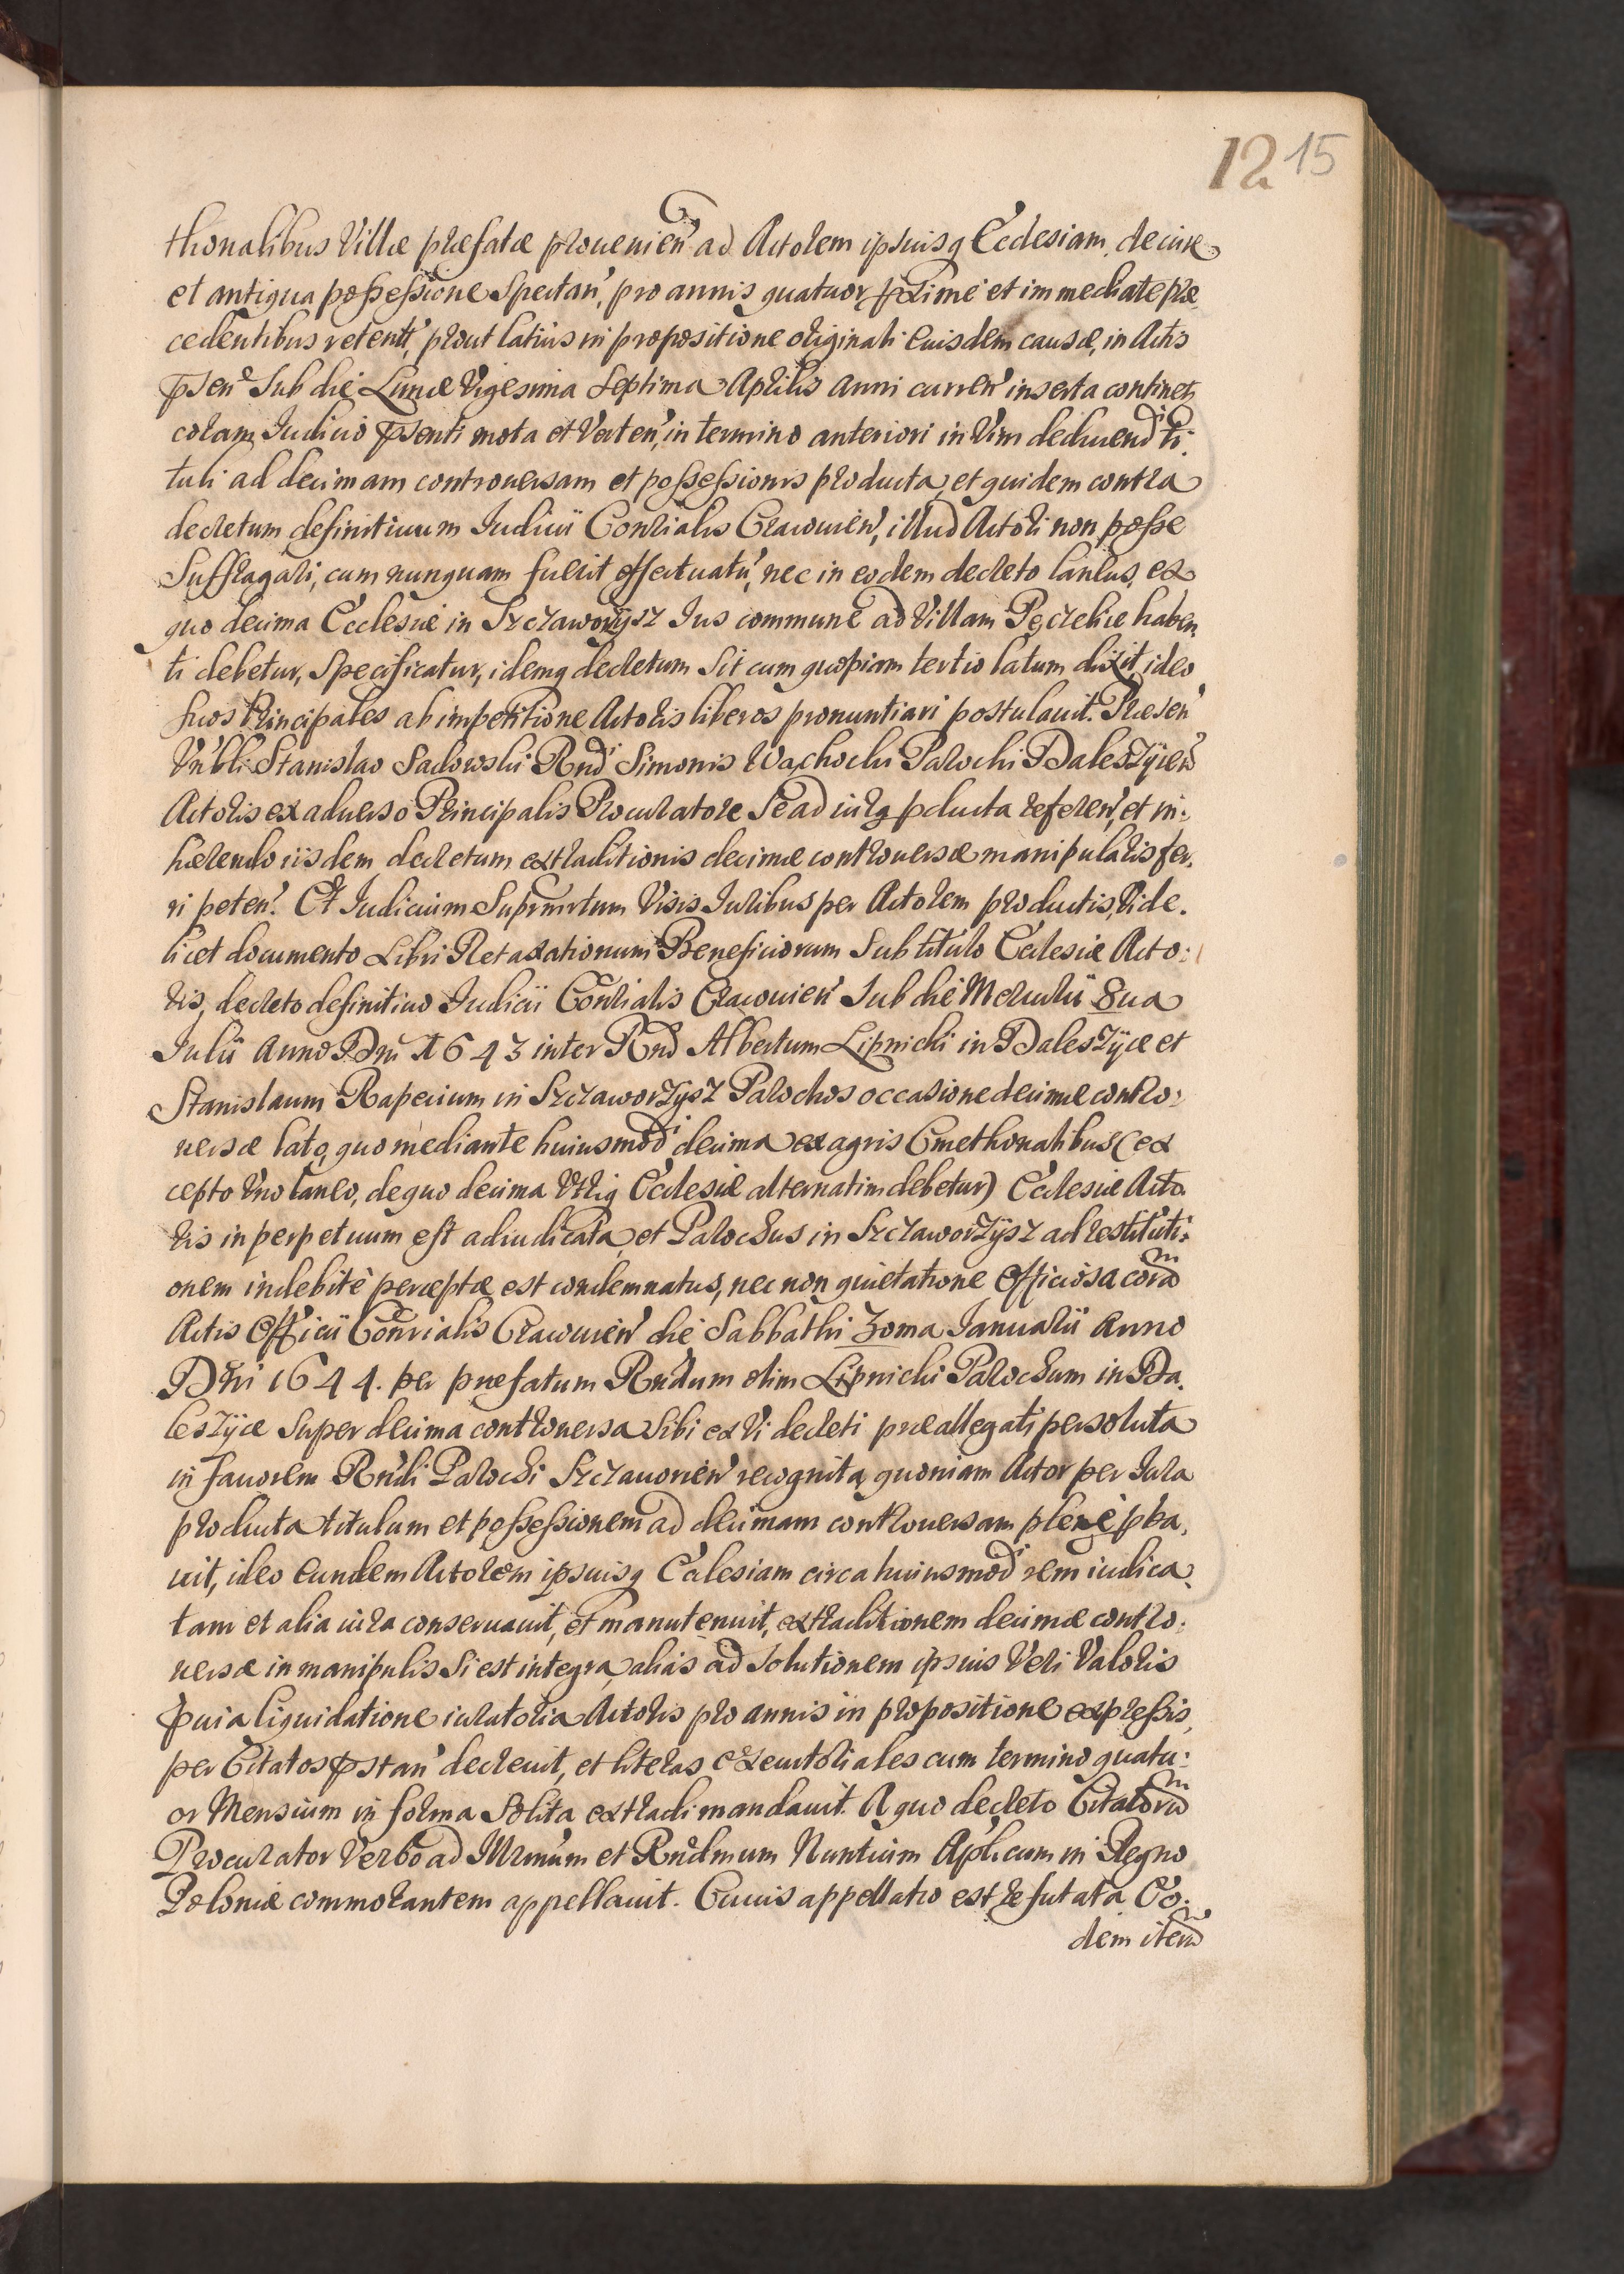 12 15
thonalibus Villæ præfatæ prouenien' ad Actorem ipsiusq Ecclesiam, de iure
et antiqua possessione Spectan', pro annis quatuor pxime et immediate præ
cedentibus retent', prout latius in propositione originali eiusdem causæ, in Actis
psen' Sub die Lunæ Vigesima Septima Aprilis anni curren' inserta continet,
coram Iudicio psenti mota et Verten', in termino anteriori in Vim deducend' ti:
tuli ad decimam controuersam et possessionis producta, et quidem contra
decretum definitiuum Iudicii Consialis Cracouien', illud Actori non posse
Suffragari, cum nunquam fuerit effectuatu', nec in eodem decreto laneus, ex
quo decima Ecclesiæ in Szczaworysz Ius commune ad Villam Pęczelice haben
ti debetur, Specificatur, idemq decretum Sit cum quopiam tertio latum dixit, ideo
suos Principales ab impetitione Actoris liberos pronuntiari postulauit. Præsen'
Vnbli Stanislao Sadowski Rnd' Simonis Wachocki Parochi Daleszycen'
Actoris ex aduerso Principalis Procuratore Se ad iura pducta referen', et in:
hærendo iisdem decretum extraditionis decimæ controuersæ manipularis fer,
ri peten'. Et Iudicium Suprmrtum Visis Iuribus per Actorem productis, Vide.
licet documento Libri Retaxationum Beneficiorum Sub titulo Ecclesiæ Acto:
ris, decreto definitiuo Iudicii Consialis Cracouien' Sub die Mercurii 8ua
Iulii Anno Dni 1643 inter Rnd Albertum Lipnicki in Daleszyce et
Stanislaum Rapecium in Szczaworzysz Parochos occasione decimæ contro:
uersæ lato, quo mediante huiusmod' decima ex agris Cmethonalibus (ex
cepto Vno laneo, de quo decima Vtriq Ecclesiæ alternatim debetur) Ecclesiæ Acto.
ris in perpetuum est adiudicata, et Parochus in Szczaworzysz ad restituti:
onem indebitè perceptæ est condemnatus, nec non quietatione Officiosa cora
Actis Officii Consialis Cracouien' die Sabbathi 30ma Ianuarii Anno
Dni 1644. per præfatum Rndum olim Lipnicki Parochum in Da,
leszyce Super decima controuersa Sibi ex Vi decreti præallegati persoluta
in fauorem Rndi Parochi Szczauorien' recognita, quoniam Actor per Iura
producta titulum et possessionem ad decimam controuersam plenè pba,
uit, ideo eundem Actorem ipsiusq Ecclesiam circa huiusmod' rem iudica,
tam et alia iura conseruauit, et manutenuit, extraditionem decimæ contro:
uersæ in manipulis Si est integra, alias ad Solutionem ipsius Veri Valoris
puia liquidatione iuratoria Actoris pro annis in propositione expressis,
per Citatos pstan' decreuit, et literas executoriales cum termino quatu:
or Mensium in forma Solita extradi mandauit. A quo decreto Citatoru
Procurator Verbo ad Illrmum et Rndmum Nuntium Aplicum in Regno
Poloniæ commorantem appellauit. Cuius appellatio est refutata Eo:
dem iteru